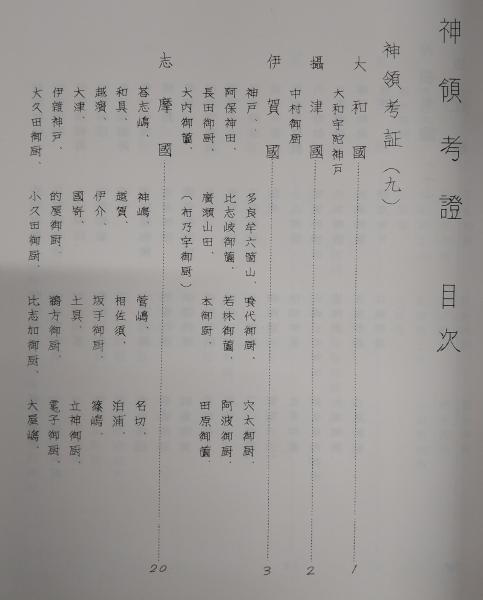 神領考證 目次
神領考証（九）
大和國 1
大和宇陀神戸
攝津國 2
中村御厨
伊賀國 3
神戸、 多良牟六箇山、 喰代御厨、 穴太御厨、
阿保神田、 比志岐御薗、 若林御薗、 阿波御厨、
長田御厨、 廣瀬山田、 本御厨、 田原御薗、
大内御薗、 （布乃宇御厨）
志摩國 20
荅志嶋、 神嶋、 菅嶋、 名切、
和具、 越賀、 相佐須、 泊浦、
越濱、 伊介、 坂手御厨、 篠嶋、
大津、 國寄、 土具、 立神御厨、
伊雜神戸、 的屋御厨、 鵜方御厨、 竃子御厨、
大久田御厨、 小久田御厨、 比志加御厨、 大屋嶋、